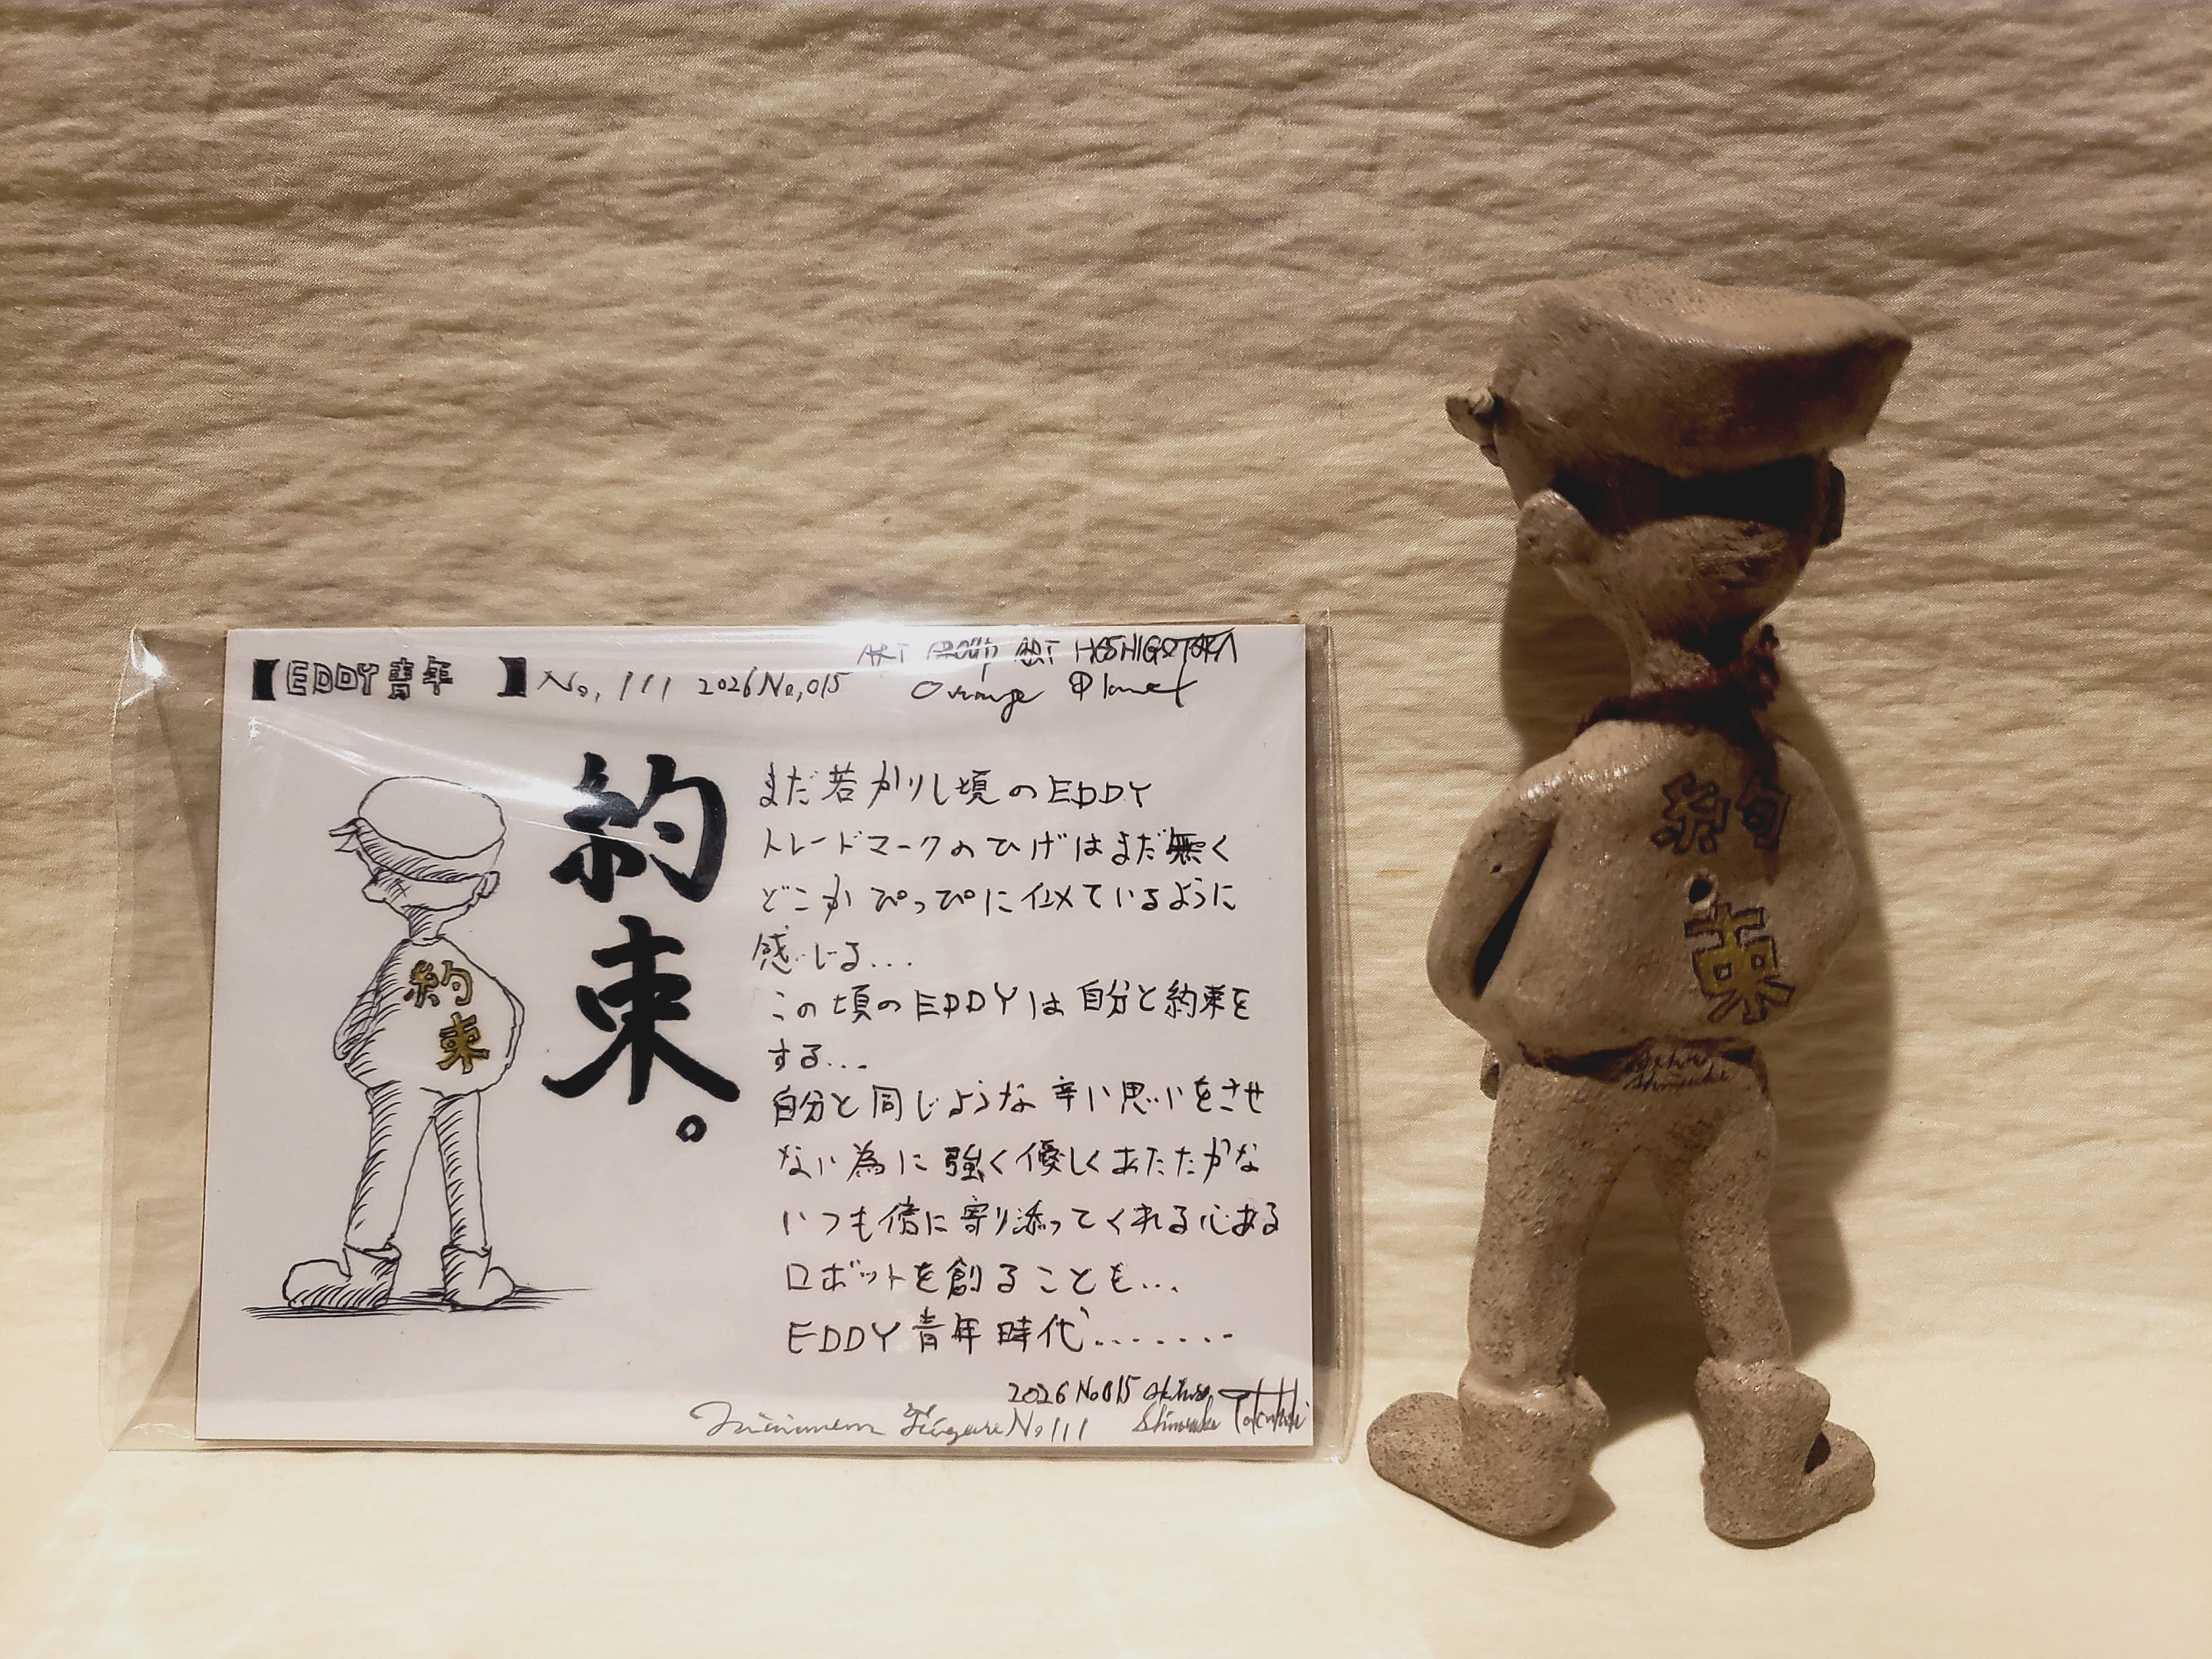 【EDDY青年　】No,111 2026No,015
ART GROUP ART HOSHIGOTOKA
Orange Planet
約束。
まだ若かりし頃のEDDY
トレードマークのひげはまだ無く
どこかぴっぴに似ているように
感じる...
この頃のEDDYは自分と約束を
する...
自分と同じような辛い思いをさせ
ない為に強く優しくあたたかな
いつも傍に寄り添ってくれる心ある
ロボットを創ることも...
EDDY青年時代.......
2026 No015
Figure No111 Shinsuke
約
束
約
束
Shinsuke